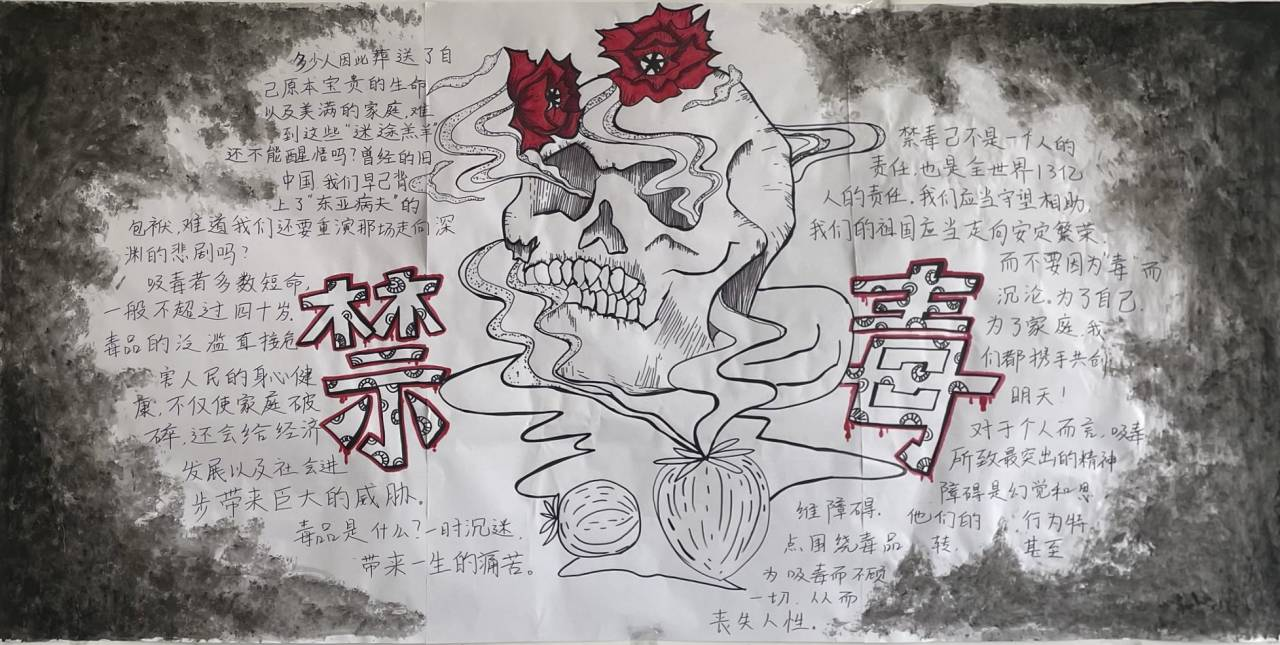 多少人因此葬送了自
己原本宝贵的生命
以及美满的家庭,难
到这些"迷途羔羊"
还不能醒悟吗?曾经的旧
中国我们早已背
上了"东亚病夫"的
包袱,难道我们还要重演那场走向深
渊的悲剧吗?
吸毒者多数短命,
一般不超过四十岁.
毒品的泛滥直接危
害人民的身心健
康,不仅使家庭破
碎,还会给经济
发展以及社会进
步带来巨大的威胁。
毒品是什么?一时沉迷,
带来一生的痛苦。
禁毒
禁毒已不是一个人的
责任,也是全世界13亿
人的责任.我们应当守望相助,
我们的祖国应当走向安定繁荣,
而不要因为"毒"而
沉沦。为了自己.
为了家庭,我
们都携手共创
明天!
对于个人而言,吸毒
所致最突出的精神
障碍是幻觉和思
维障碍.
他们的行为特
点围绕毒品转.
甚至
为吸毒而不顾
一切,从而
丧失人性.